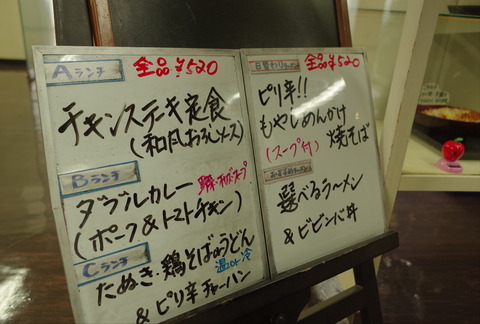 Aランチ 全品¥520
チキンステーキ定食
(和風おろしソース)
Bランチ
ダブルカレー
(ポーク&トマトチキン)
Cランチ
たぬき・鶏そばorうどん
温or冷
&ピリ辛チャーハン
日替わりラーメン 全品¥520
ピリ辛!!
もやしめんかけ
焼そば
(スープ付)
選べるラーメン
&ビビンバ丼